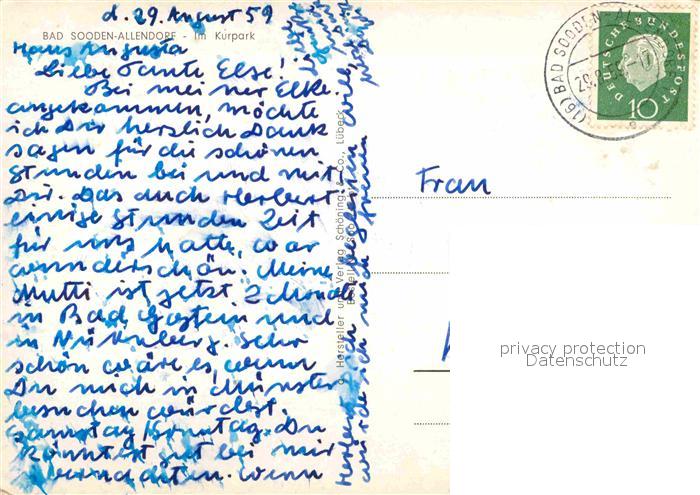 d. 29. August 59
BAD SOODEN-ALLENDORF - Im Kurpark
Haus Augusta
Liebe Tante Else!
Bei meiner Elke
angekommen, möchte
ich Dir herzlich Dank
sagen für die schönen
Stunden bei und mit
Dir. Das auch Herbert
einige Stunden Zeit
für uns hatte, war
wunderschön. Meine
Mutti ist jetzt 2 Monate
in Bad Gastein und
in Nürnberg. Sehr
schön wäre es, wenn
Du mich in Münster
besuchen würdest.
Samstag/Sonntag. Du
könntest gut bei mir
wenn
würde ich mich freuen
Hersteller und Verlag Schöning & Co., Lübeck
Frau
(16) BAD SOODEN-ALL
DEUTSCHE BUNDESPOST
10
privacy protection
Datenschutz